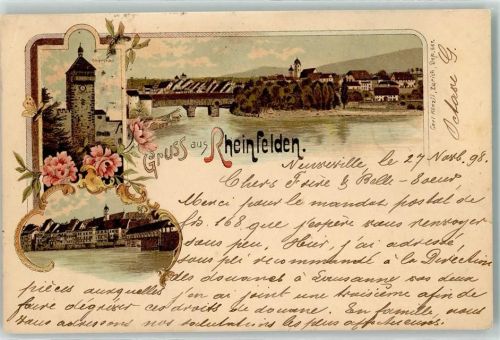 Gruss aus Rheinfelden.
Carl Künzli, Zürich. Dep. ges.
Octave G.
Neuveville, le 27 Novb. 98.
Chers Frère & Belle-Soeur
Merci pour le mandat postal de
fs 168 que j'espère vous renvoyer
sous peu. Hier, j'ai adressé
sous pli recommandé à la Direction
des douanes à Lausanne vos deux
pièces auxquelles j'en ai joint une troisième afin de
faire dégréver ces droits de douane. En famille nous
vous adressons nos salutations les plus affectueuses.